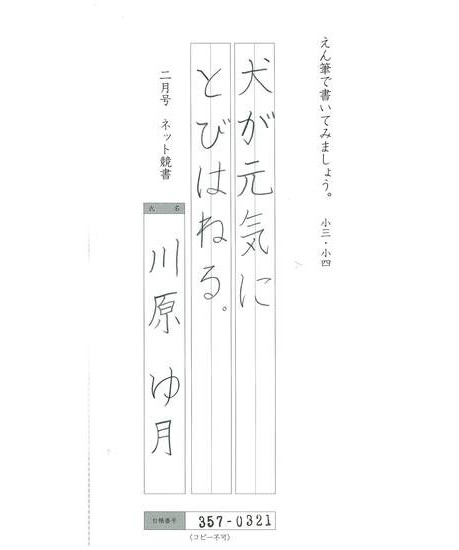 えん筆で書いてみましょう。 小三・小四
犬が元気に
とびはねる。
二月号 ネット競書
氏名
川原 ゆ月
台帳番号 357-0321
(コピー不可)